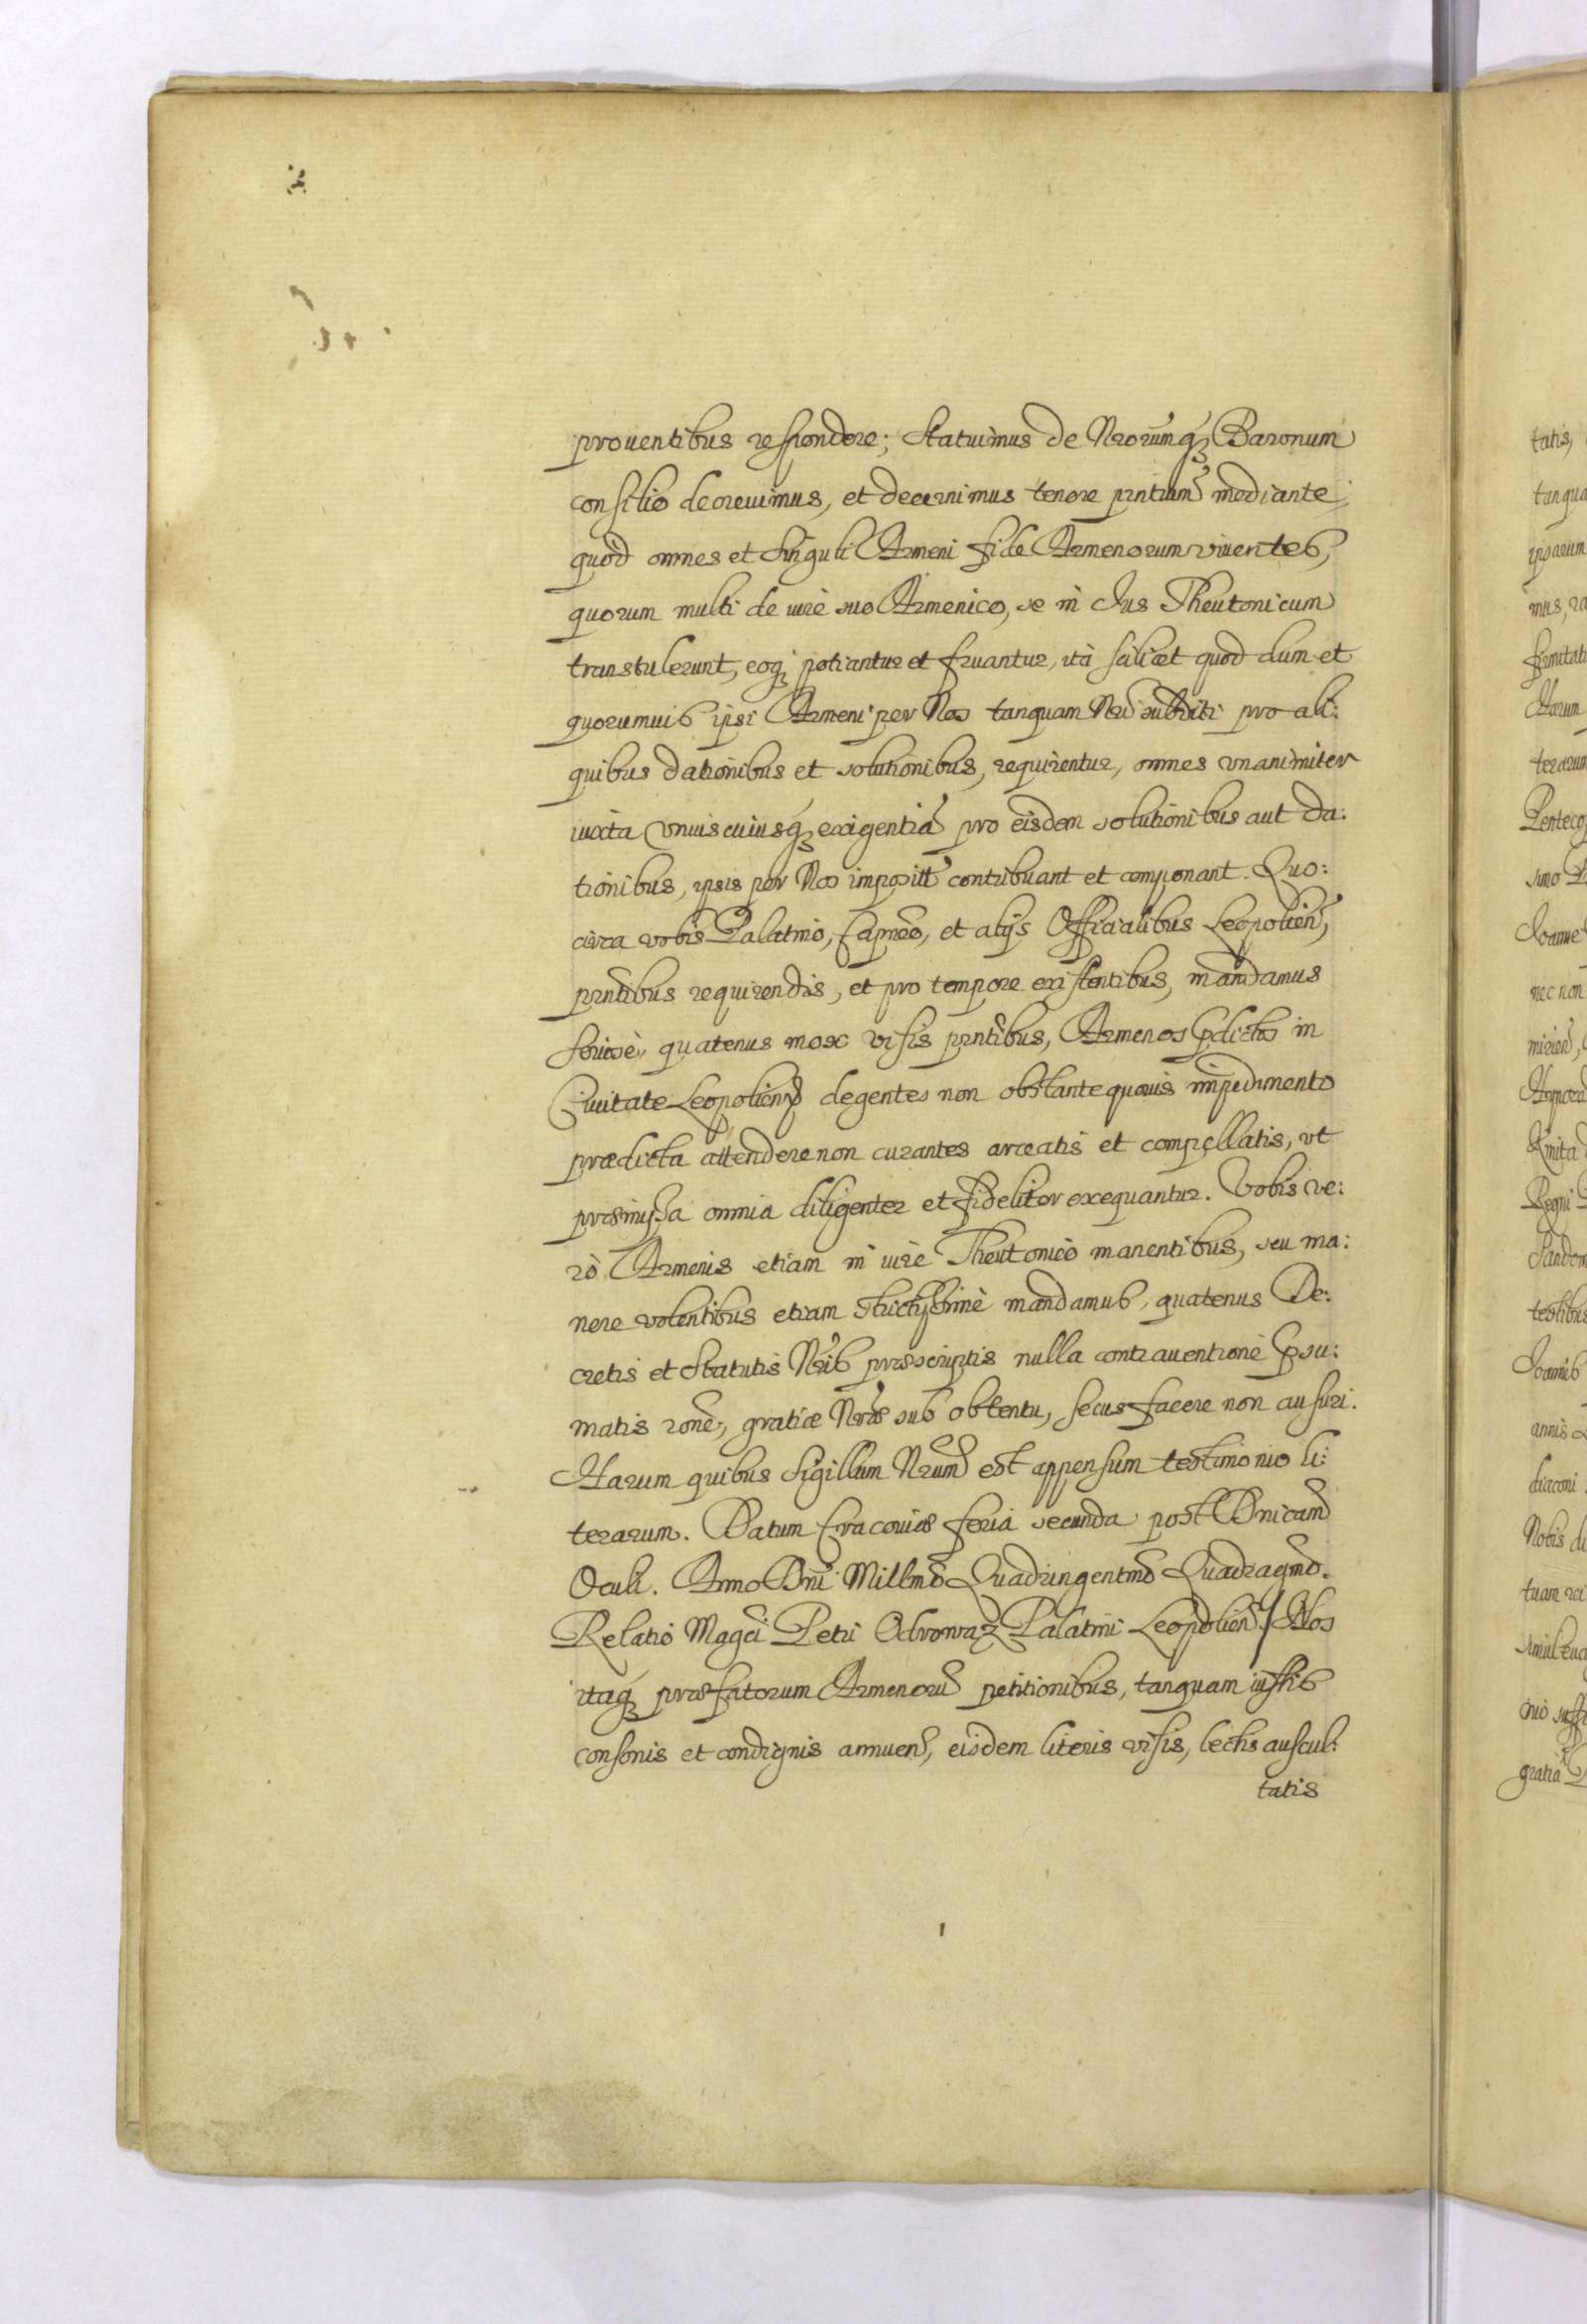 prouentibus respondere; Statuimus de Nrorumq; Baronum
consilio decreuimus, et decernimus tenore pntium mediante,
quod omnes et singuli Armeni fide Armenorum viuentes,
quorum multi de iure suo Armenico, se in Ius Theutonicum
transtulerunt, eoq; potiantur et fruantur, ità scilicet quod dum et
quorumuis ipsi Armeni per Nos tanquam Nri subditi pro ali:
quibus dationibus et solutionibus, requirentur, omnes vnanimiter
iuxta vniuscuiusq; exigentiã pro eisdem solutionibus aut da:
tionibus, ipsis per Nos imposit contribuant et componant. Quo:
circa vobis Palatino, Capneo, et alijs Officialibus Leopolien,
pntibus requirendis, et pro tempore existentibus, mandamus
seriosè, quatenus mox visis pntibus, Armenos pdictos in
Ciuitate Leopolien degentes non obstante quouis impedimento
prædicta attendere non curantes arceatis et compellatis, vt
præmissa omnia diligenter et fideliter exequantur. Vobis ve:
rò Armenis etiam in iure Theutonico manentibus, seu ma:
nere volentibus etiam strictissimè mandamus, quatenus De:
cretis et Statutis Nris præscriptis nulla contrauentione psu:
matis rone, gratiæ Nræ sub obtentu, secus facere non ausuri.
Harum quibus Sigillum Nrum est appensum testimonio li:
terarum. Datum Cracouiæ feria secunda post Dnicam
Oculi. Anno Dni Millmo Quadringentmo Quadragmo.
Relatio Magci Petri Odrowaz Palatini Leopolien / Nos
itaq; præfatorum Armenorũ petitionibus, tanquam iustis
consonis et condignis annuen, eisdem literis visis, lectis auscul:
tatis